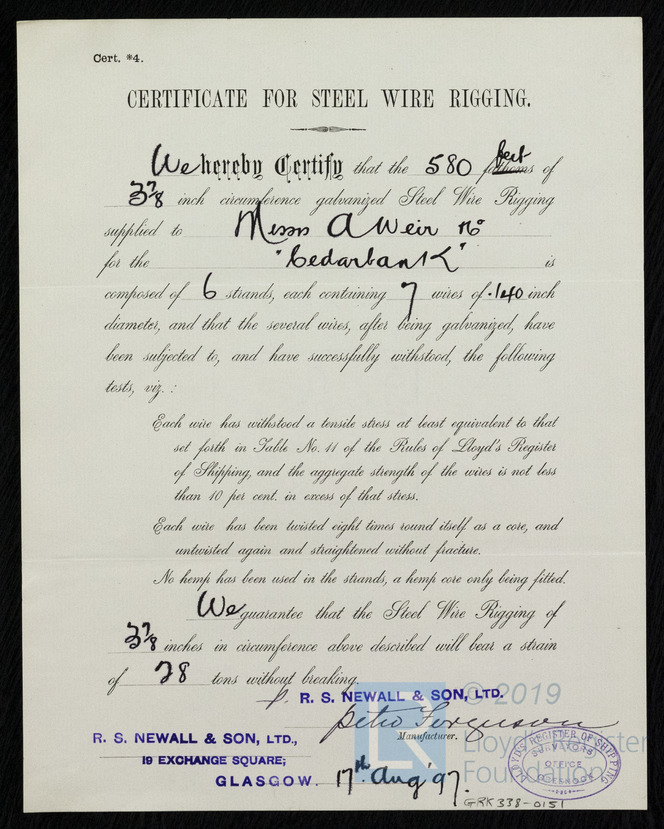 Cert. *4.
CERTIFICATE FOR STEEL WIRE RIGGING.
We hereby Certify that the 580 fathoms feet of
3 7/8 inch circumference galvanized Steel Wire Rigging
supplied to Messrs A Weir & Co
for the "Cedarbank" is
composed of 6 strands, each containing 7 wires of .140 inch
diameter, and that the several wires, after being galvanized, have
been subjected to, and have successfully withstood, the following
tests, viz. :
Each wire has withstood a tensile stress at least equivalent to that
set forth in Table No. 11 of the Rules of Lloyd's Register
of Shipping, and the aggregate strength of the wires is not less
than 10 per cent. in excess of that stress.
Each wire has been twisted eight times round itself as a core, and
untwisted again and straightened without fracture.
No hemp has been used in the strands, a hemp core only being fitted.
We guarantee that the Steel Wire Rigging of
3 7/8 inches in circumference above described will bear a strain
of 38 tons without breaking.
p. R. S. NEWALL & SON, LTD.
© 2019
Peter Ferguson
Manufacturer.
R. S. NEWALL & SON, LTD.,
19 EXCHANGE SQUARE;
GLASGOW.
17th Aug '97.
LR
Lloyd's Register
Foundation
LLOYD'S REGISTER OF SHIPPING
SURVEYORS
OFFICE
GREENOCK
GRK338-0151